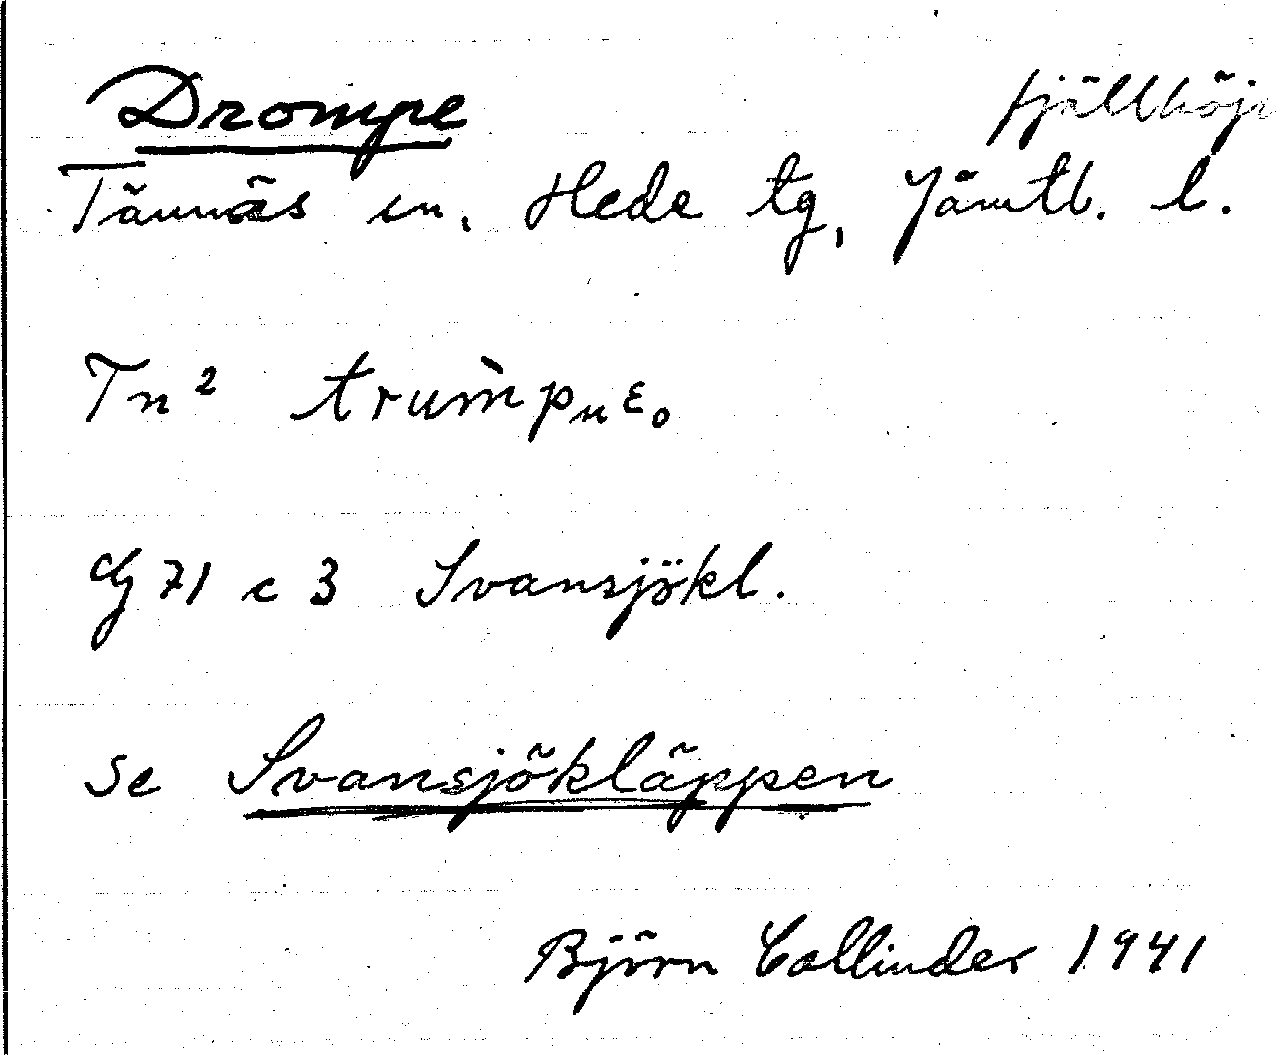 Drompe fjällhöjd
Tännäs sn, Hede tg, Jämtl. l.
Tn² trum̀pᵤɛ₀
G 71 c 3 Svansjökl.
se Svansjökläppen
Björn Collinder 1941